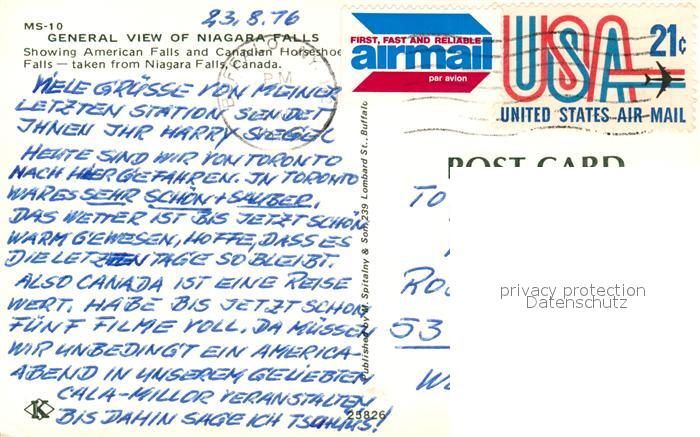 23.8.76
MS-10
GENERAL VIEW OF NIAGARA FALLS
Showing American Falls and Canadian Horseshoe
Falls — taken from Niagara Falls, Canada.
VIELE GRÜSSE VON MEINER
LETZTEN STATION SENDET
IHNEN IHR HARRY
HEUTE SIND WIR VON TORONTO
NACH HIER GEFAHREN. IN TORONTO
WAR ES SEHR SCHÖN + SAUBER.
DAS WETTER IST BIS JETZT SCHÖN
WARM GEWESEN, HOFFE, DASS ES
DIE LETZTEN TAGE SO BLEIBT.
ALSO CANADA IST EINE REISE
WERT. HABE BIS JETZT SCHON
FÜNF FILME VOLL. DA MÜSSEN
WIR UNBEDINGT EIN AMERICA-
ABEND IN UNSEREM GELIEBTEN
CALA-MILLOR VERANSTALTEN
BIS DAHIN SAGE ICH TSCHÜSS!
K
25826
Published by J. Spitalny & Son, 239 Lombard St., Buffalo
BUFFALO, NY
PM
FIRST, FAST AND RELIABLE
airmail
par avion
USA 21¢
UNITED STATES AIR MAIL
POST CARD
TO
53
privacy protection
Datenschutz